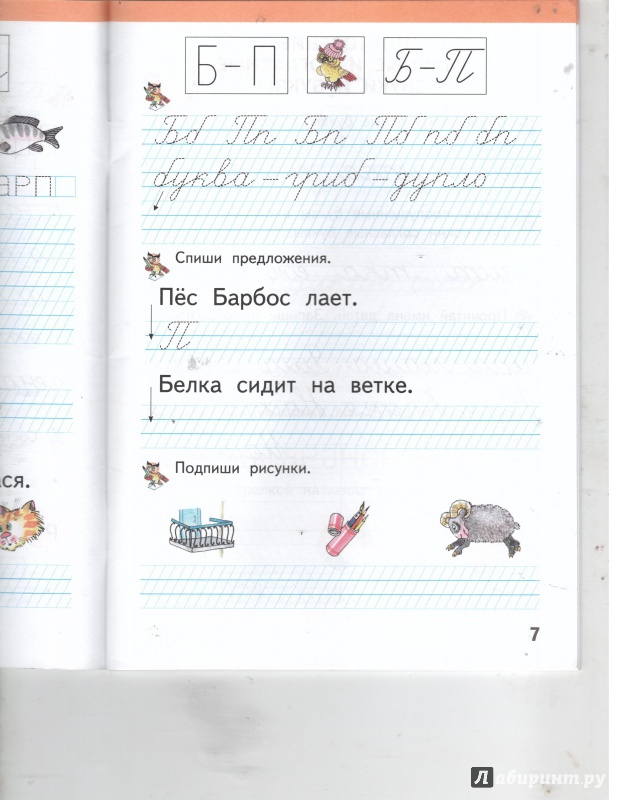 Б-П
Б-П
Бб Пп Бп Пб пб бп
буква-гриб-дупло
арп
Спиши предложения.
Пёс Барбос лает.
П
Белка сидит на ветке.
Подпиши рисунки.
ся.
7
Лабиринт.ру